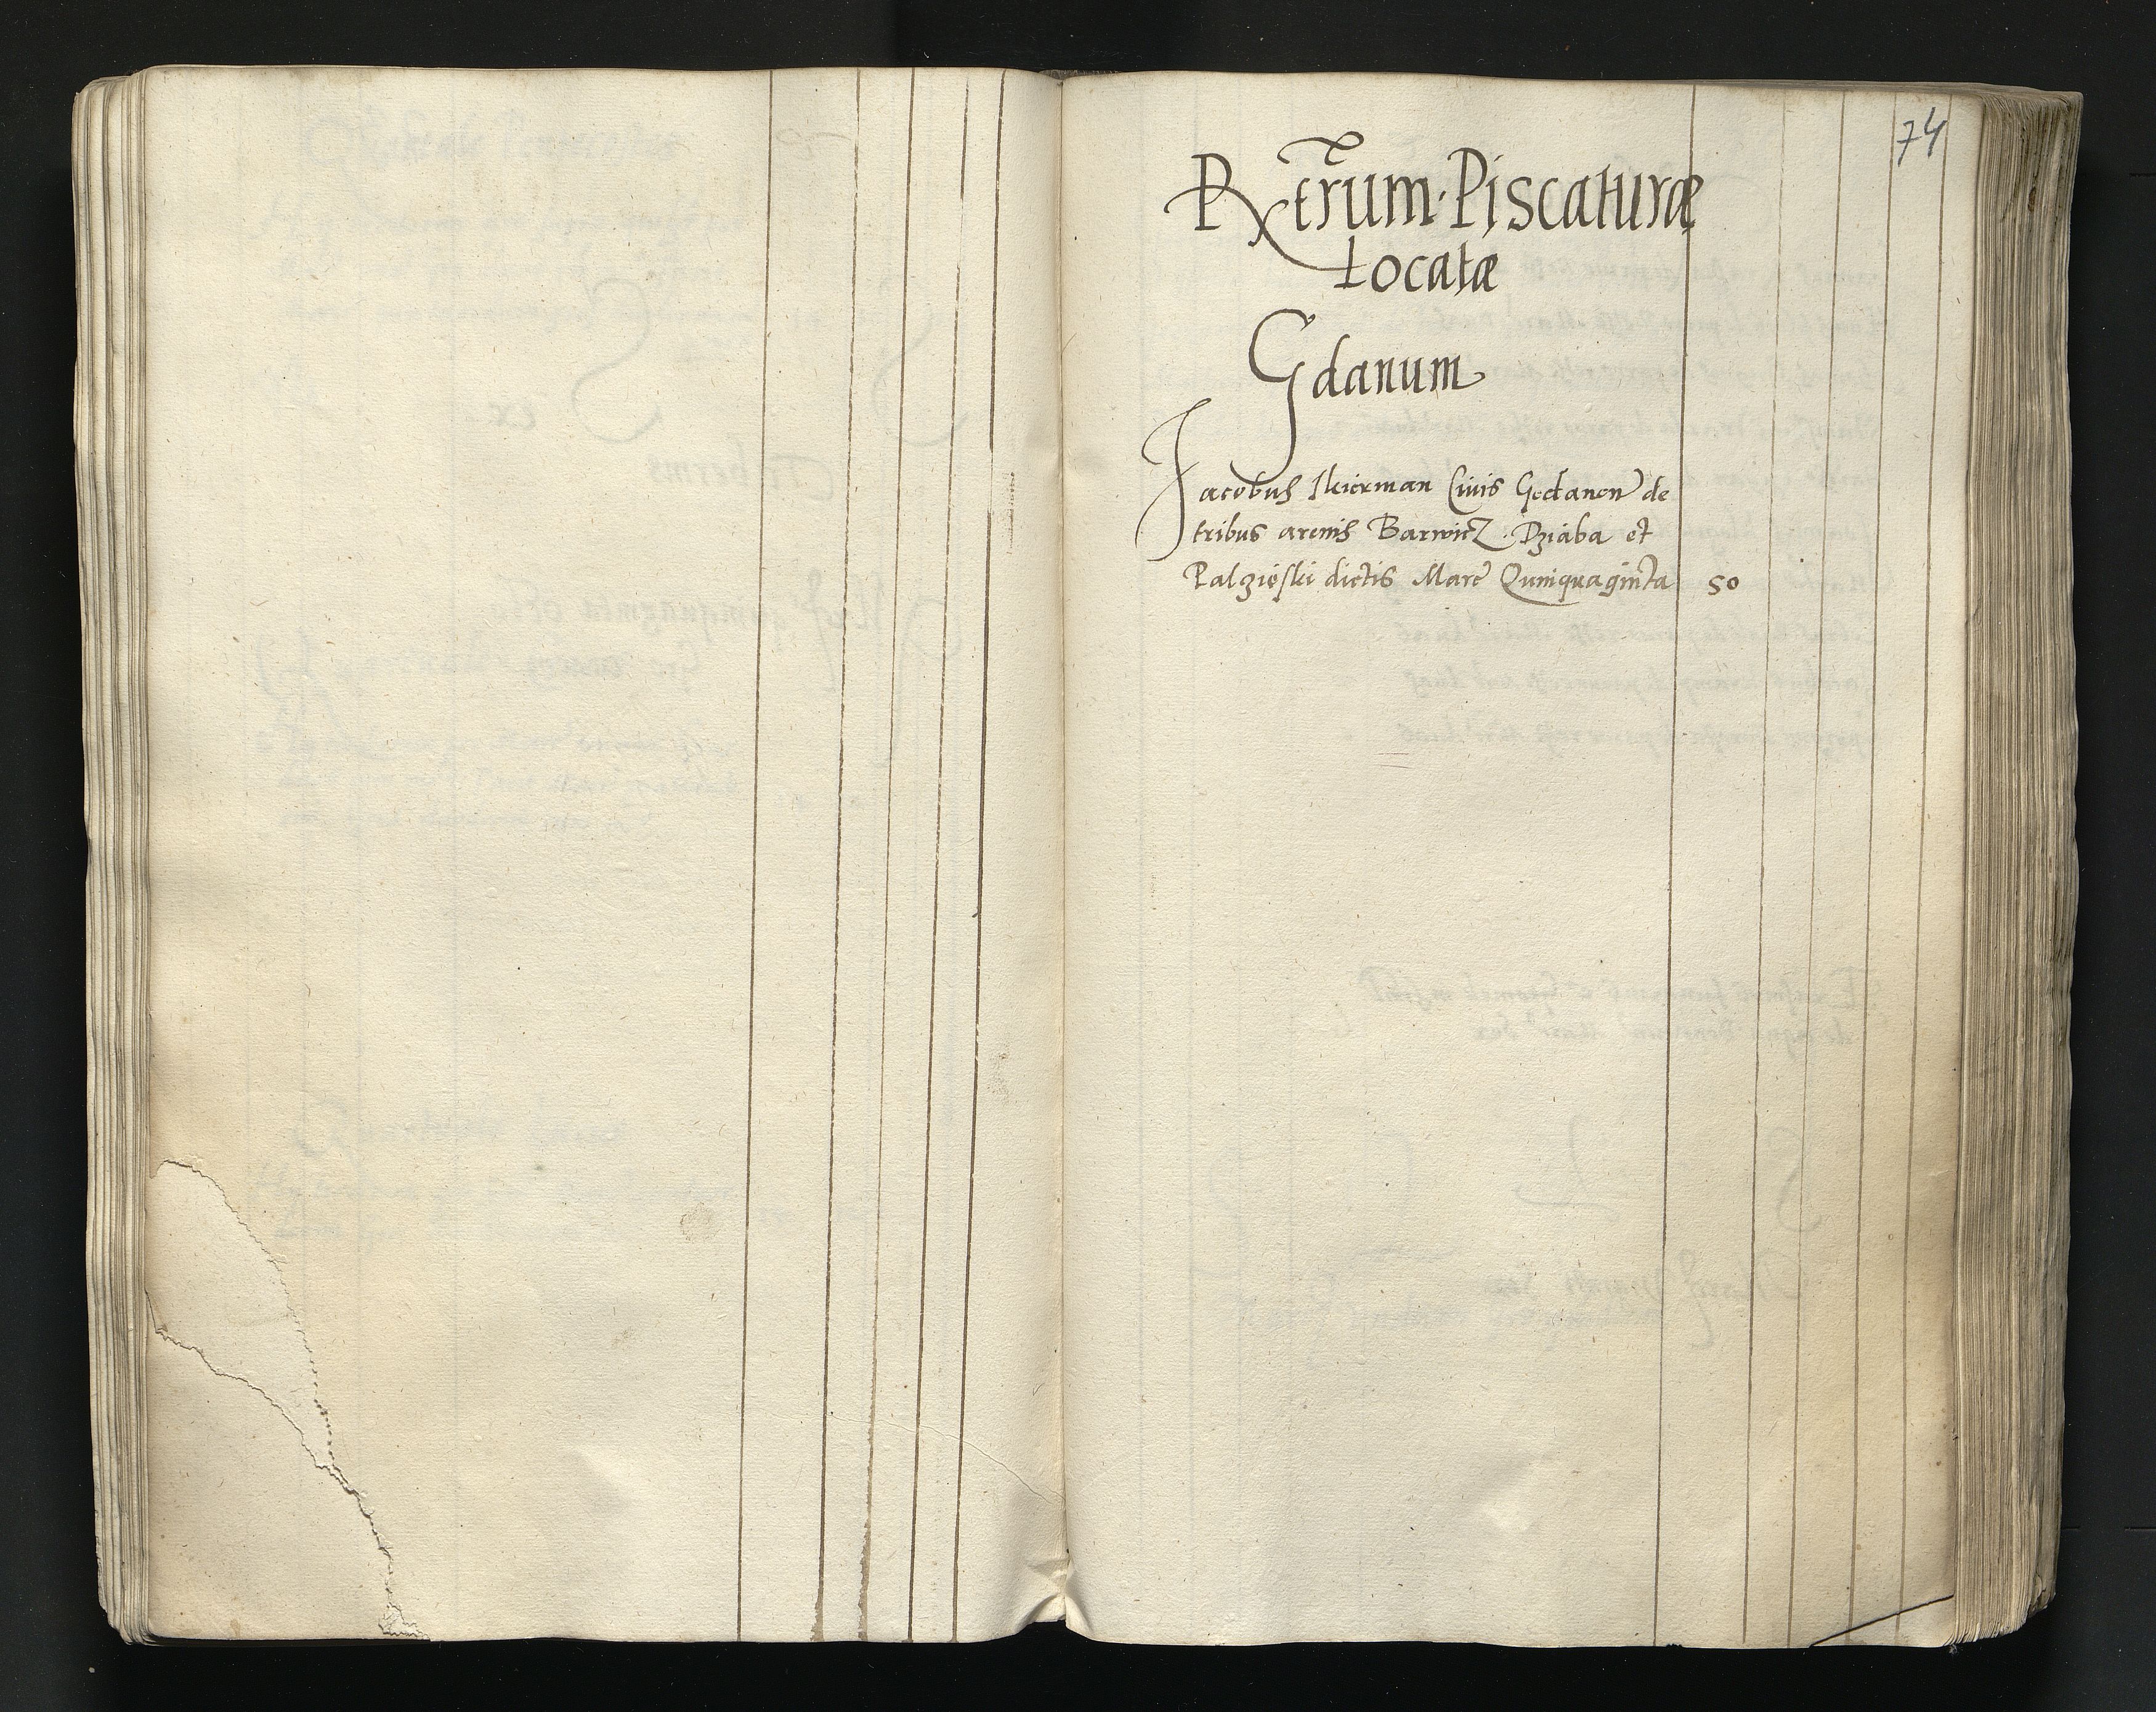 74
Rerum Piscaturæ
Locatæ
Gdanum
Jacobus Civis Gedanen de
tribus arenis Barwicz. Dziaba et
Palzieski dictis Marc Quinquaginta 50